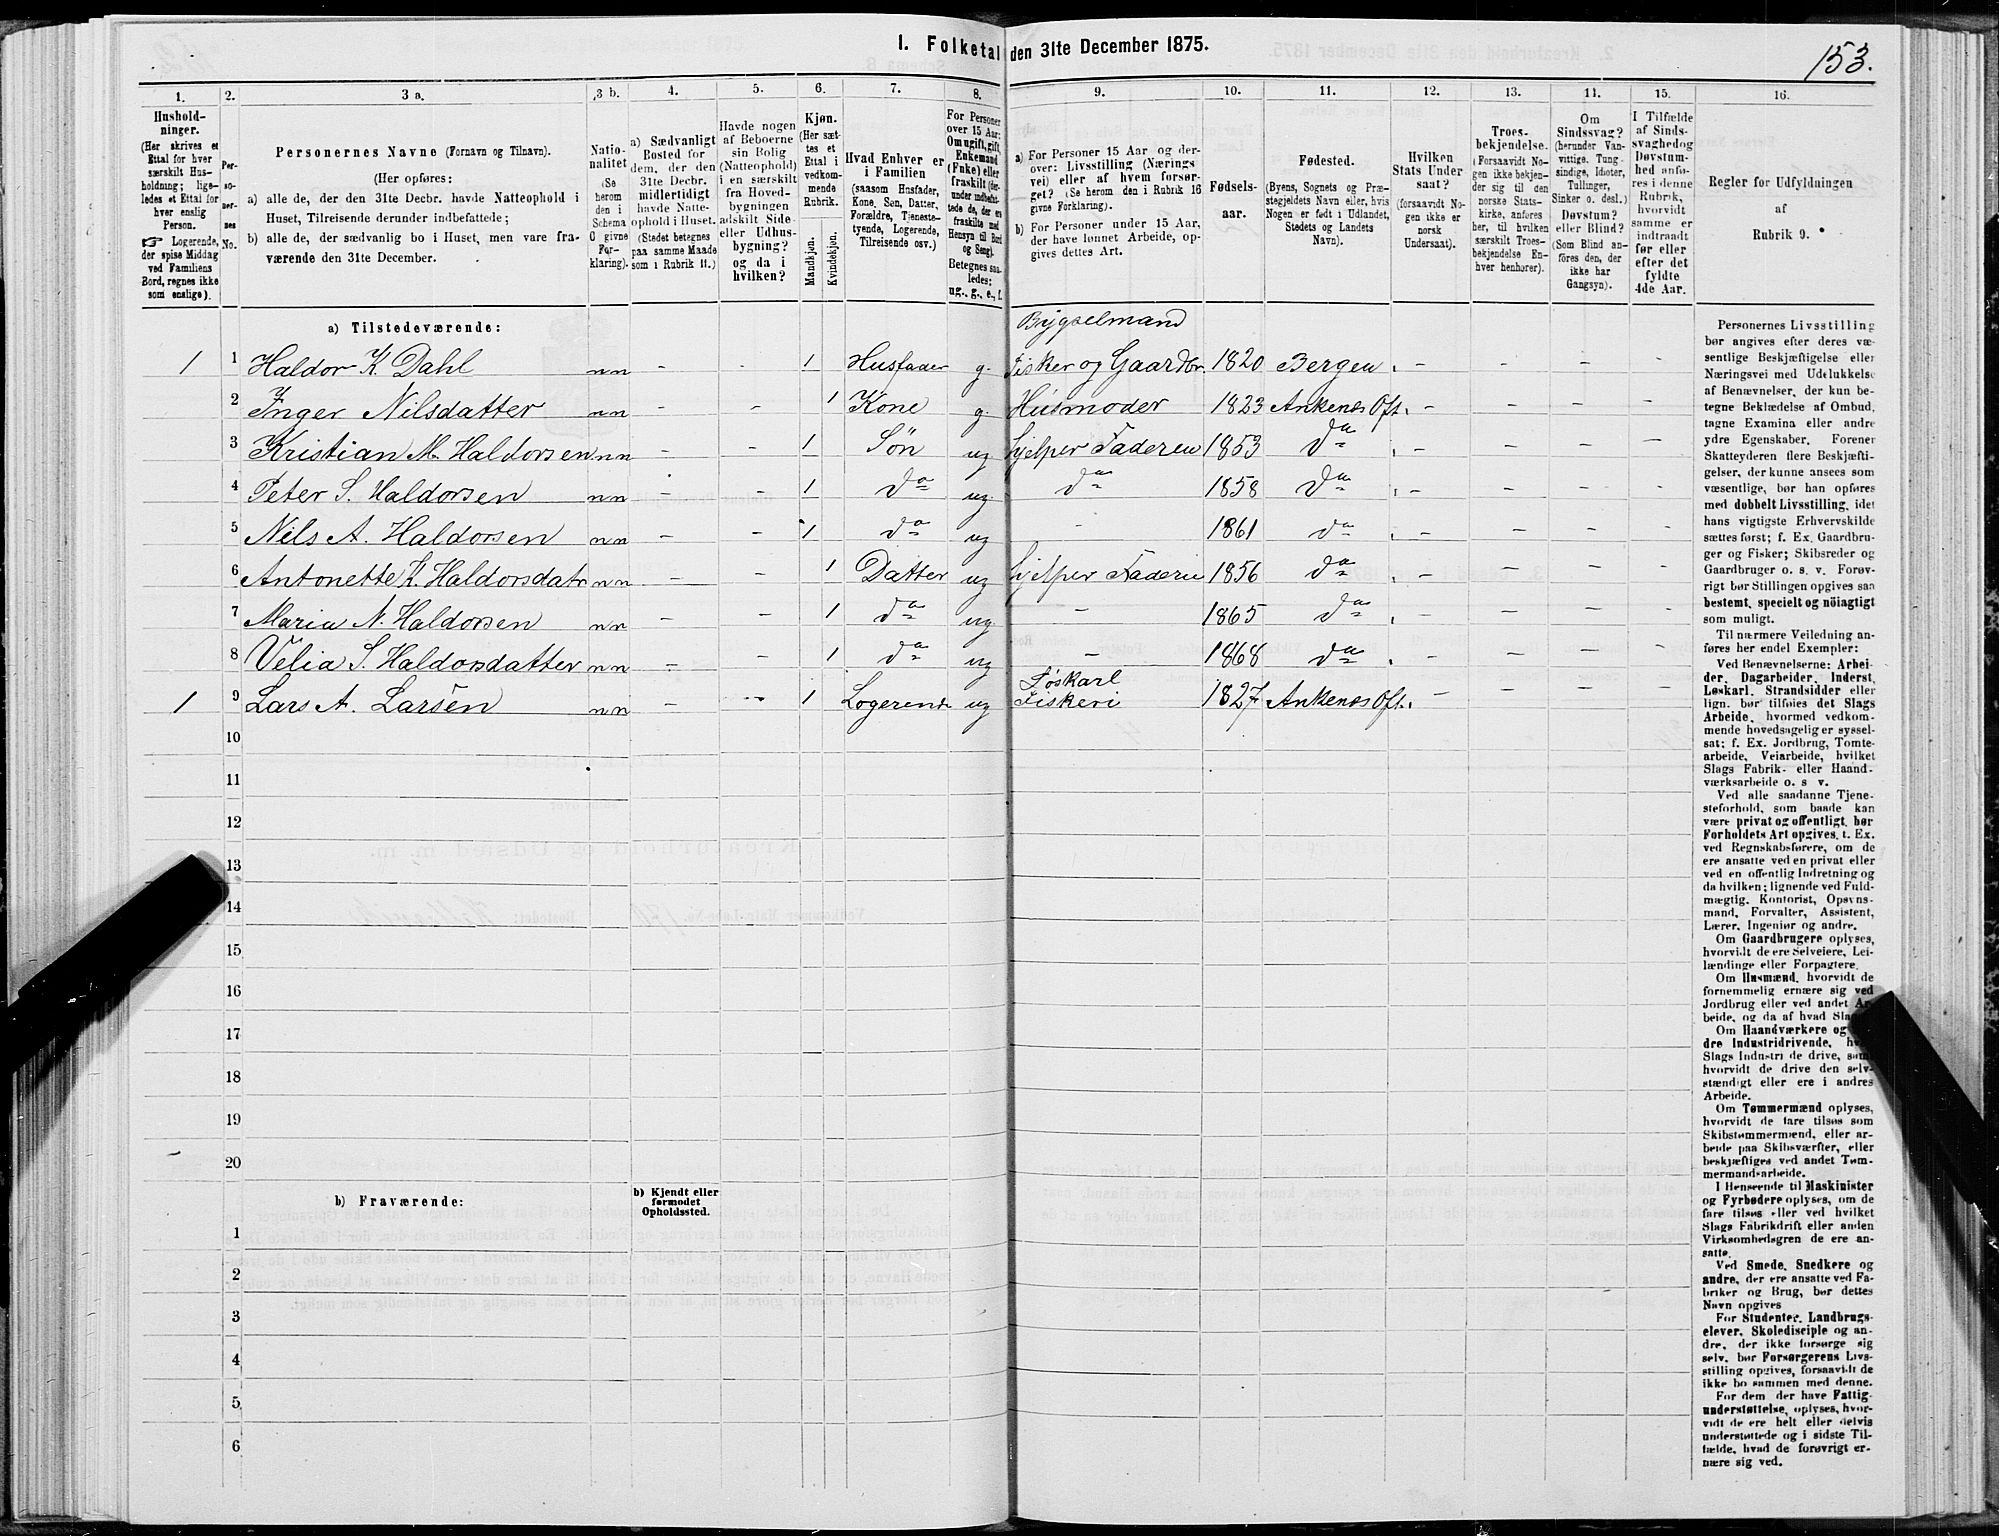 I. Folketal den 31te December 1875.
153.
1.
2.
3 a.
3 b.
4.
5.
6.
7.
8.
9.
10.
11.
12.
13.
11.
15.
16.
Hushold-
ninger.
(Her skrives et
Ettal for hver
særskilt Hus-
holdning; lige-
ledes et Ettal for
hver enslig
Person.
☞ Logerende,
der spise Middag
ved Familiens
Bord, regnes ikke
som enslige).
Per-
so-
ner-
nes
No.
Personernes Navne (Fornavn og Tilnavn).
(Her opføres:
a) alle de, der den 31te Decbr. havde Natteophold i
Huset, Tilreisende derunder indbefattede;
b) alle de, der sædvanlig bo i Huset, men vare fra-
værende den 31te December.
Natio-
nalitet
(Se
herom
den i
Schema
6 givne
For-
klaring).
a) Sædvanligt
Bosted for
dem, der den
31te Decbr.
midlertidigt
havde Natte-
ophold i Huset.
(Stedet betegnes
paa samme Maade
som i Rubrik 11.)
Havde nogen
af Beboerne
sin Bolig
(Natteophold)
i en særskilt
fra Hoved-
bygningen
adskilt Side-
eller Udhus-
bygning?
og da i
hvilken?
Kjøn.
(Her sæt-
tes et
Ettal i
vedkom-
mende
Rubrik.
Mandkjøn.
Kvindekjøn.
Hvad Enhver er
i Familien
(saasom Husfader,
Kone, Søn, Datter,
Forældre, Tjeneste-
tyende, Logerende,
Tilreisende osv.)
For Personer
over 15 Aar:
Om ugift, gift,
Enkemand
(Enke) eller
fraskilt (der-
under indbefat-
tede de, der ere
fraskilte med
Hensyn til Bord
og Seng).
Betegnes saa-
ledes:
ug., g., e., f.
a) For Personer 15 Aar og der-
over: Livsstilling (Nærings
vei) eller af hvem forsør-
get? (Se herom den i Rubrik 16
givne Forklaring).
b) For Personer under 15 Aar,
der have lønnet Arbeide, op-
gives dettes Art.
Fødsels-
aar.
Fødested.
(Byens, Sognets og Præ-
stegjeldets Navn eller, hvis
Nogen er født i Udlandet,
Stedets og Landets
Navn).
Hvilken
Stats Under
saat?
(forsaavidt No-
gen ikke er
norsk
Undersaat).
Troes-
bekjendelse.
(Forsaavidt No-
gen ikke bekjen-
der sig til den
norske Stats-
kirke, anføres
her, til hvilken
særskilt Troes-
bekjendelse En-
hver henhører).
Om
Sindssvag?
(herunder Van-
vittige, Tung-
sindige, Idioter,
Tullinger,
Sinker o. desl.)
Døvstum?
eller Blind?
(Som Blind an-
føres den, der
ikke har
Gangsyn).
I Tilfælde
af Sinds-
svaghed og
Døvstum-
hed anfø-
res i denne
Rubrik,
hvorvidt
samme er
indtraadt
før eller
efter det
fyldte
4de Aar.
Regler for Udfyldningen
af
Rubrik 9.
a) Tilstedeværende:
Bygselmand
1 1 Haldor K. Dahl nn - - 1 Husfader g. Fisker og Gaardbr. 1820 Bergen - - - -
2 Inger Nilsdatter nn - - 1 Kone g. Husmoder 1823 Ankenæs Oft. - - - -
3 Kristian M. Haldorsen nn - - 1 Søn ug hjelper Faderen 1853 da - - - -
4 Peter S. Haldorsen nn - - 1 do ug da 1858 da - - - -
5 Nils A. Haldorsen nn - - 1 do ug - 1861 da - - - -
6 Antonette K. Haldorsdatr nn - - 1 Datter ug hjelper Faderen 1856 da - - - -
7 Maria N. Haldorsen nn - - 1 da ug - 1865 da - - - -
8 Velia S. Haldorsdatter nn - - 1 da ug - 1868 da - - - -
Løskarl
1 9 Lars A. Larsen nn - - 1 Logerende ug Fiskeri 1827 Ankenæs Oft. - - - -
10
11
12
13
14
15
16
17
18
19
20
b) Fraværende:
b) Kjendt eller
formodet
Opholdssted.
1
2
3
4
5
6
Personernes Livsstilling
bør angives efter deres væ-
sentlige Beskjæftigelse eller
Næringsvei med Udelukkelse
af Benævnelser, der kun be-
tegne Beklædelse af Ombud,
tagne Examina eller andre
ydre Egenskaber. Forener
Skatteyderen flere Beskjæfti-
gelser, der kunne ansees som
væsentlige, bør han opføres
med dobbelt Livsstilling, idet
hans vigtigste Erhvervskilde
sættes først; f. Ex. Gaardbru-
ger og Fisker; Skibsreder og
Gaardbruger o. s. v. Forøv-
rigt bør Stillingen opgives saa
bestemt, specielt og nöiagtigt
som muligt.
Til nærmere Veiledning an-
føres her endel Exempler:
Ved Benævnelserne: Arbei-
der, Dagarbeider, Inderst,
Løskarl, Strandsidder eller
lign. bør tilføies det Slags
Arbeide, hvormed vedkom-
mende hovedsagelig er syssel-
sat; f. Ex. Jordbrug, Tomte-
arbeide, Veiarbeide, hvilket
Slags Fabrik- eller Haand-
værksarbeide o. s v.
Ved alle saadanne Tjene-
steforhold, som baade kan
være privat og offentligt, bør
Forholdets Art opgives, t. Ex.
ved Regnskabsførere, om de
ere ansatte ved en privat eller
ved en offentlig Indretning og
da hvilken; lignende ved Fuld-
mægtig, Kontorist, Opsyns-
mand, Forvalter, Assistent,
Lærer, Ingeniør og andre.
Om Gaardbrugere oplyses,
hvorvidt de ere Selveiere, Lei-
lændinge eller Forpagtere.
Om Husmænd, hvorvidt de
fornemmelig ernære sig ved
Jordbrug eller ved andet Ar-
beide, og da af hvad Slags.
Om Haandværkere og
dre Industridrivende,
Slags Industri de drive, samt
hvorvidt de drive den selv-
stændigt eller ere i andres
Arbeide.
Om Tømmermænd oplyses,
hvorvidt de fare tilsøs som
Skibstømmermænd, eller ar-
beide paa Skibsværfter, eller
beskjæftiges ved andet Tøm-
mermandsarbeide.
I Henseende til Maskinister
og Fyrbødere oplyses, om de
fare tilsøs eller ved hvilket
Slags Fabrikdrift eller anden
Virksomhedsgren de ere an-
satte.
Ved Smede, Snedkere og
andre, der ere ansatte ved Fa-
briker og Brug, bør dettes
Navn opgives
For Studenter, Landbrugs-
elever, Skoledisciple og an-
dre, der ikke forsørge sig
selv, bør Forsørgerens Livs-
stilling opgives, forsaavidt de
ikke bo sammen med denne.
For dem, der have Fattig-
understøttelse, oplyses, hvor-
vidt de ere helt eller delvis
understøttede og i sidste Til-
fælde, hvad de forøvrigt er-
nære sig ved.